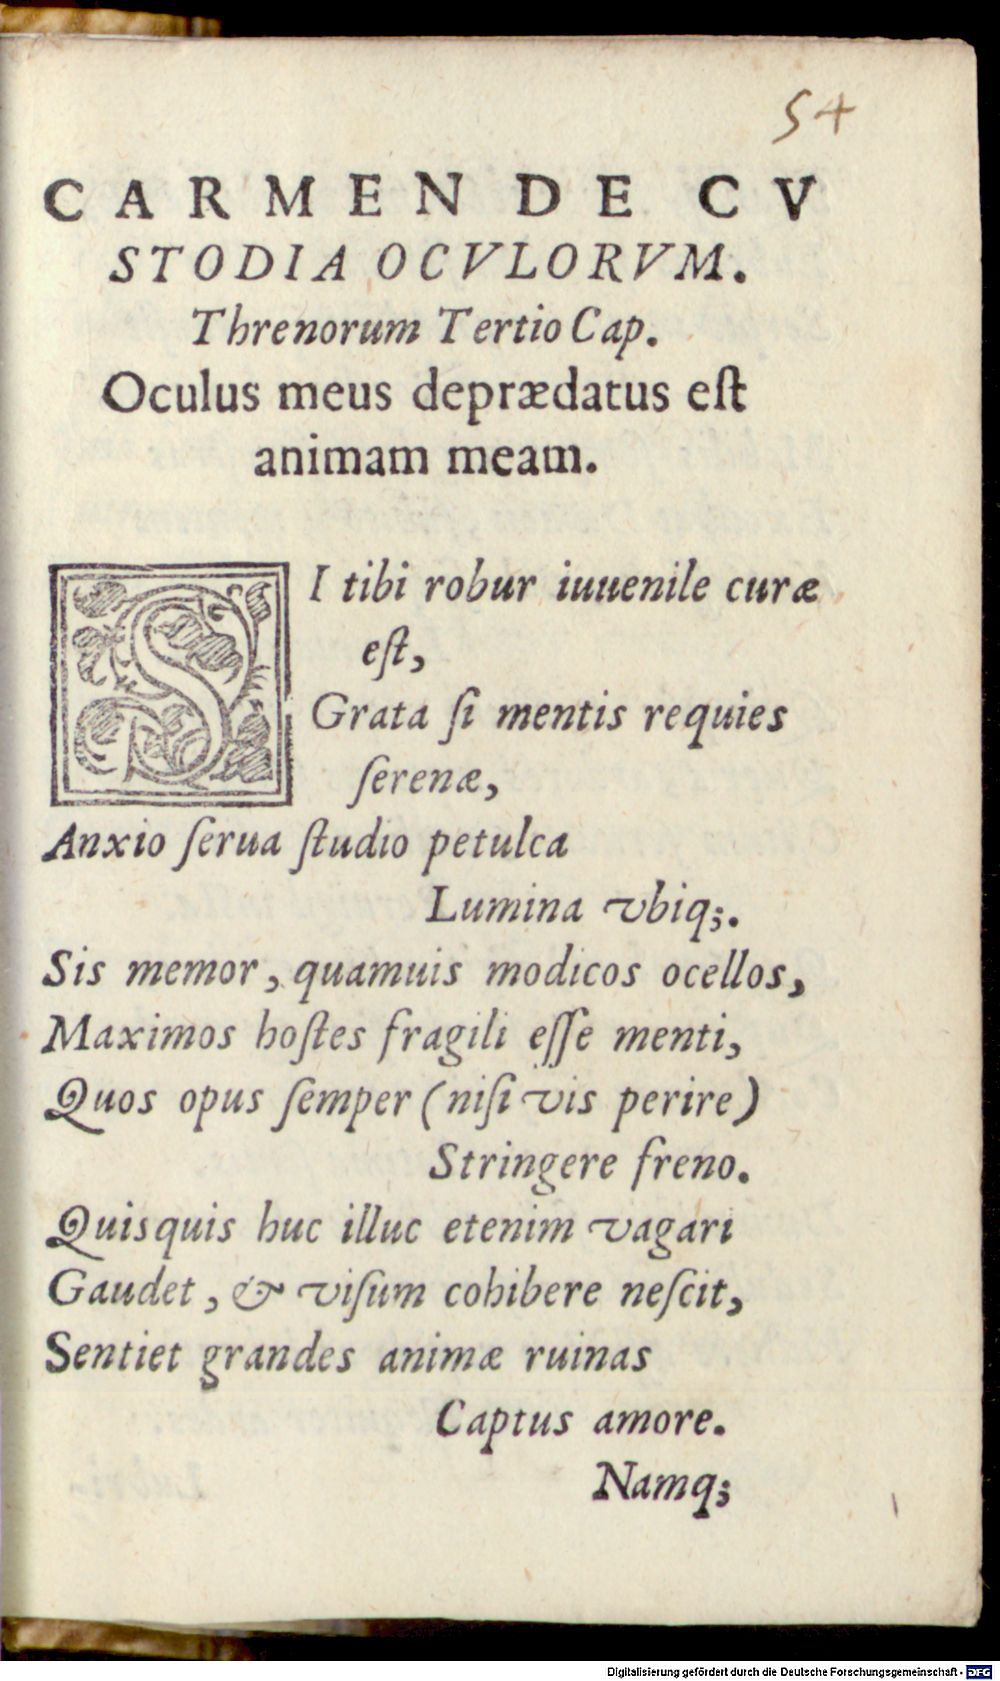 54
CARMEN DE CV
STODIA OCVLORVM.
Threnorum Tertio Cap.
Oculus meus deprædatus eſt
animam meam.
SI tibi robur iuuenile curæ
eſt,
Grata ſi mentis requies
ſerenæ,
Anxio ſerua ſtudio petulca
Lumina vbiq;.
Sis memor, quamuis modicos ocellos,
Maximos hoſtes fragili eſſe menti,
Quos opus ſemper (niſi vis perire)
Stringere freno.
Quisquis huc illuc etenim vagari
Gaudet, & viſum cohibere neſcit,
Sentiet grandes animæ ruinas
Captus amore.
Namq;
Digitalisierung gefördert durch die Deutsche Forschungsgemeinschaft - DFG